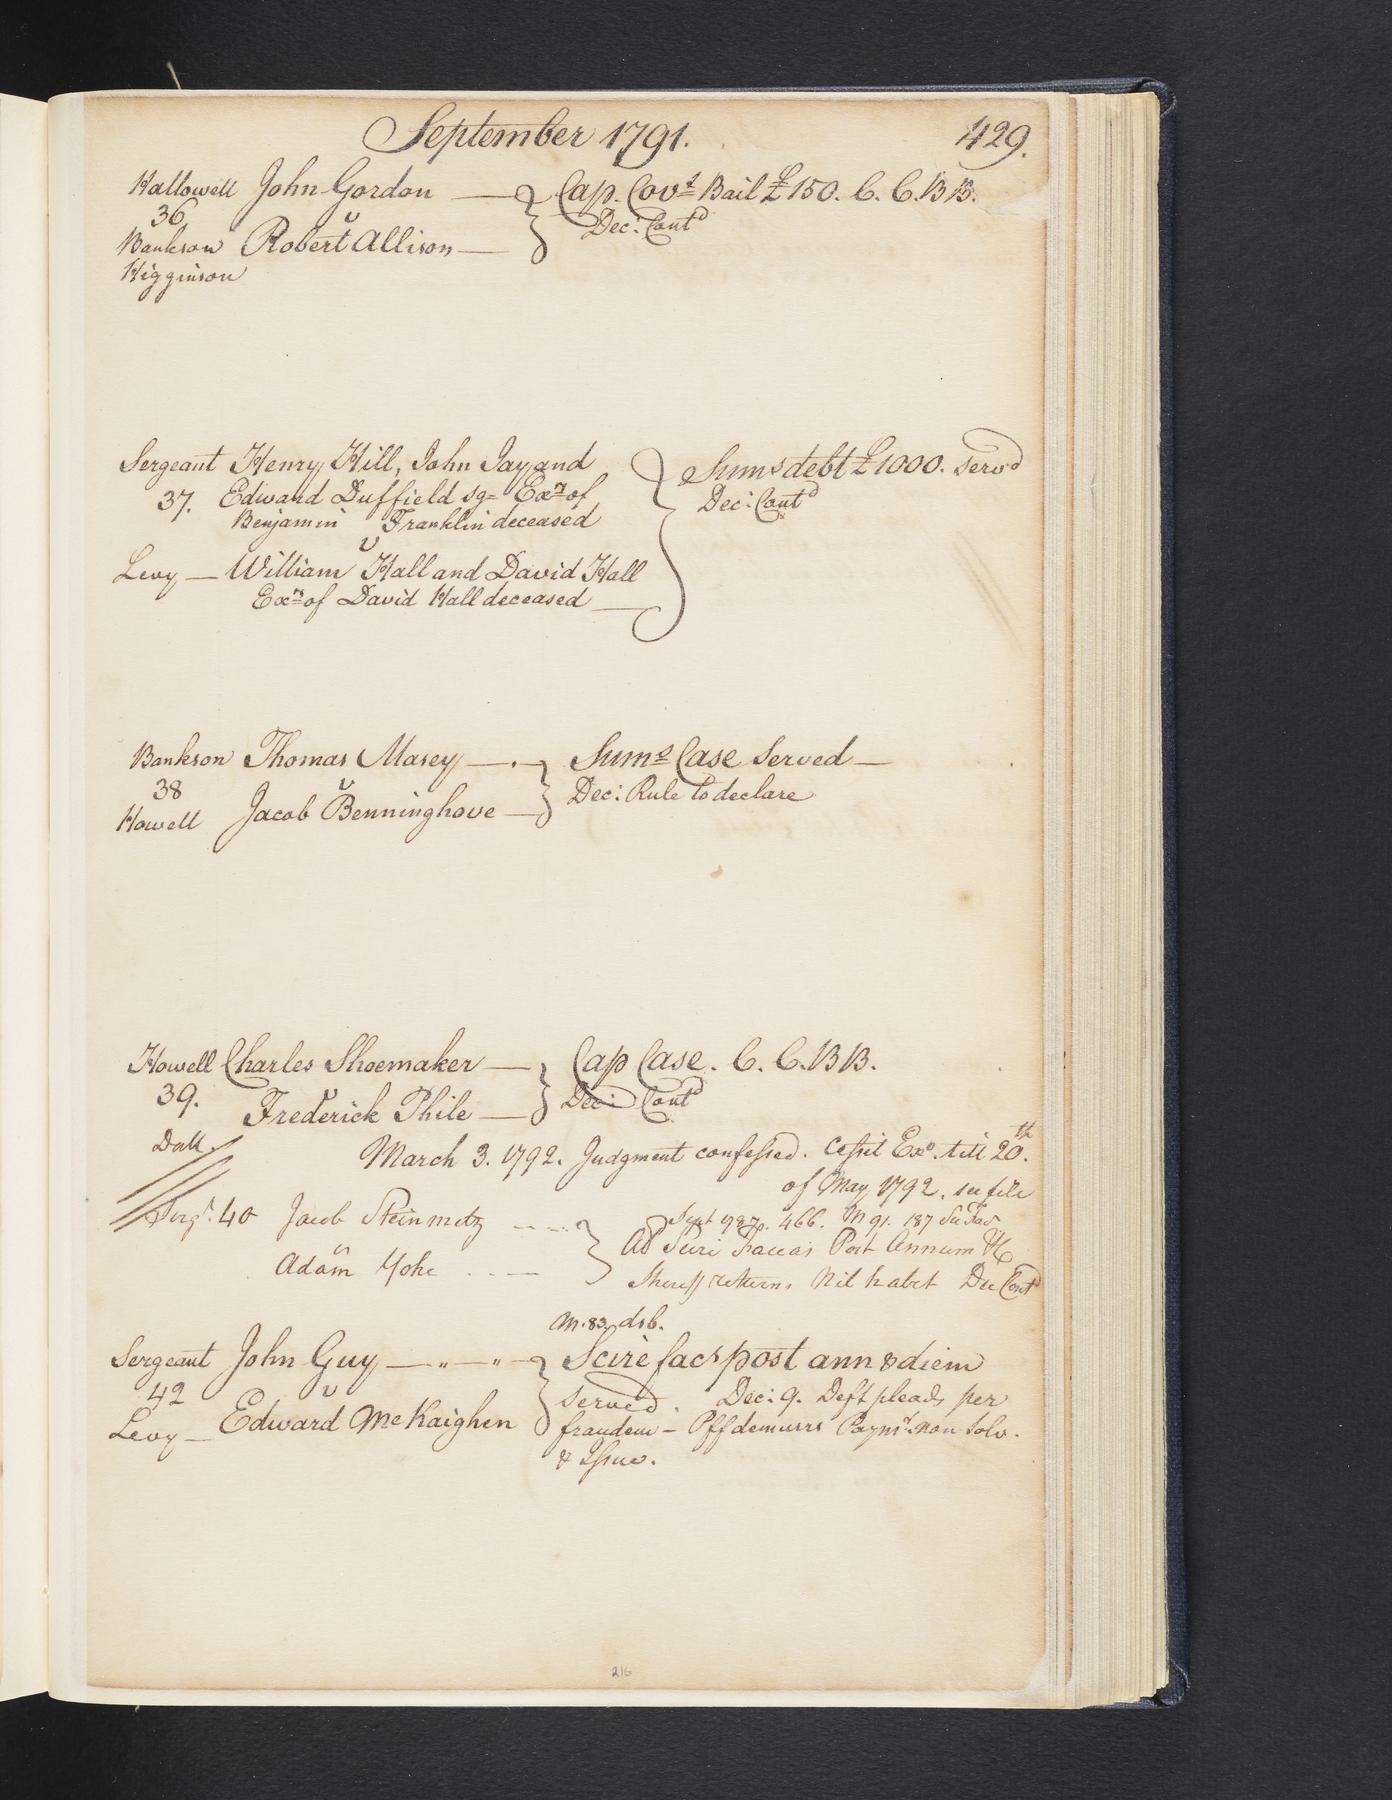 September 1791. 429.
Hallowell John Gordon Cap. Cov.t Bail £150. C. C. B B.
36 v Dec: Cont.d
Bankson Robert Allison
Higginson
Sergeant Henry Hill, John Jay and Sum.s debt £1000. Serv.d
37. Edward Duffield Ex.rs of Dec: Cont.d
Benjamin Franklin deceased
v
Levy William Hall and David Hall
Ex.rs of David Hall deceased
Bankson Thomas Masey Sum.s Case Served
38 v Dec: Rule to declare
Howell Jacob Benninghove
Howell Charles Shoemaker Cap Case. C. C. B B.
39. v Dec: Cont.d
Frederick Phile
Dall.
March 3. 1792. Judgment confessed. Cessit Exo. till 20th.
of May 1792. see file
Serg.t 40 Jacob Steinmetz Sept 1787 p. 466. M 91. 187
v Al Scire Facias Post Annum &c
Adam Yohe Sheriff returns Nil habet Dec Cont.d
M. 83. dsb.
Sergeant John Guy Scire fac.s post ann & diem
42 v Served. Dec: 9. Deft pleads per
Levy Edward McKaighen fraudem - Pff demurrs Paym.t non Solv.
& Issue.
216